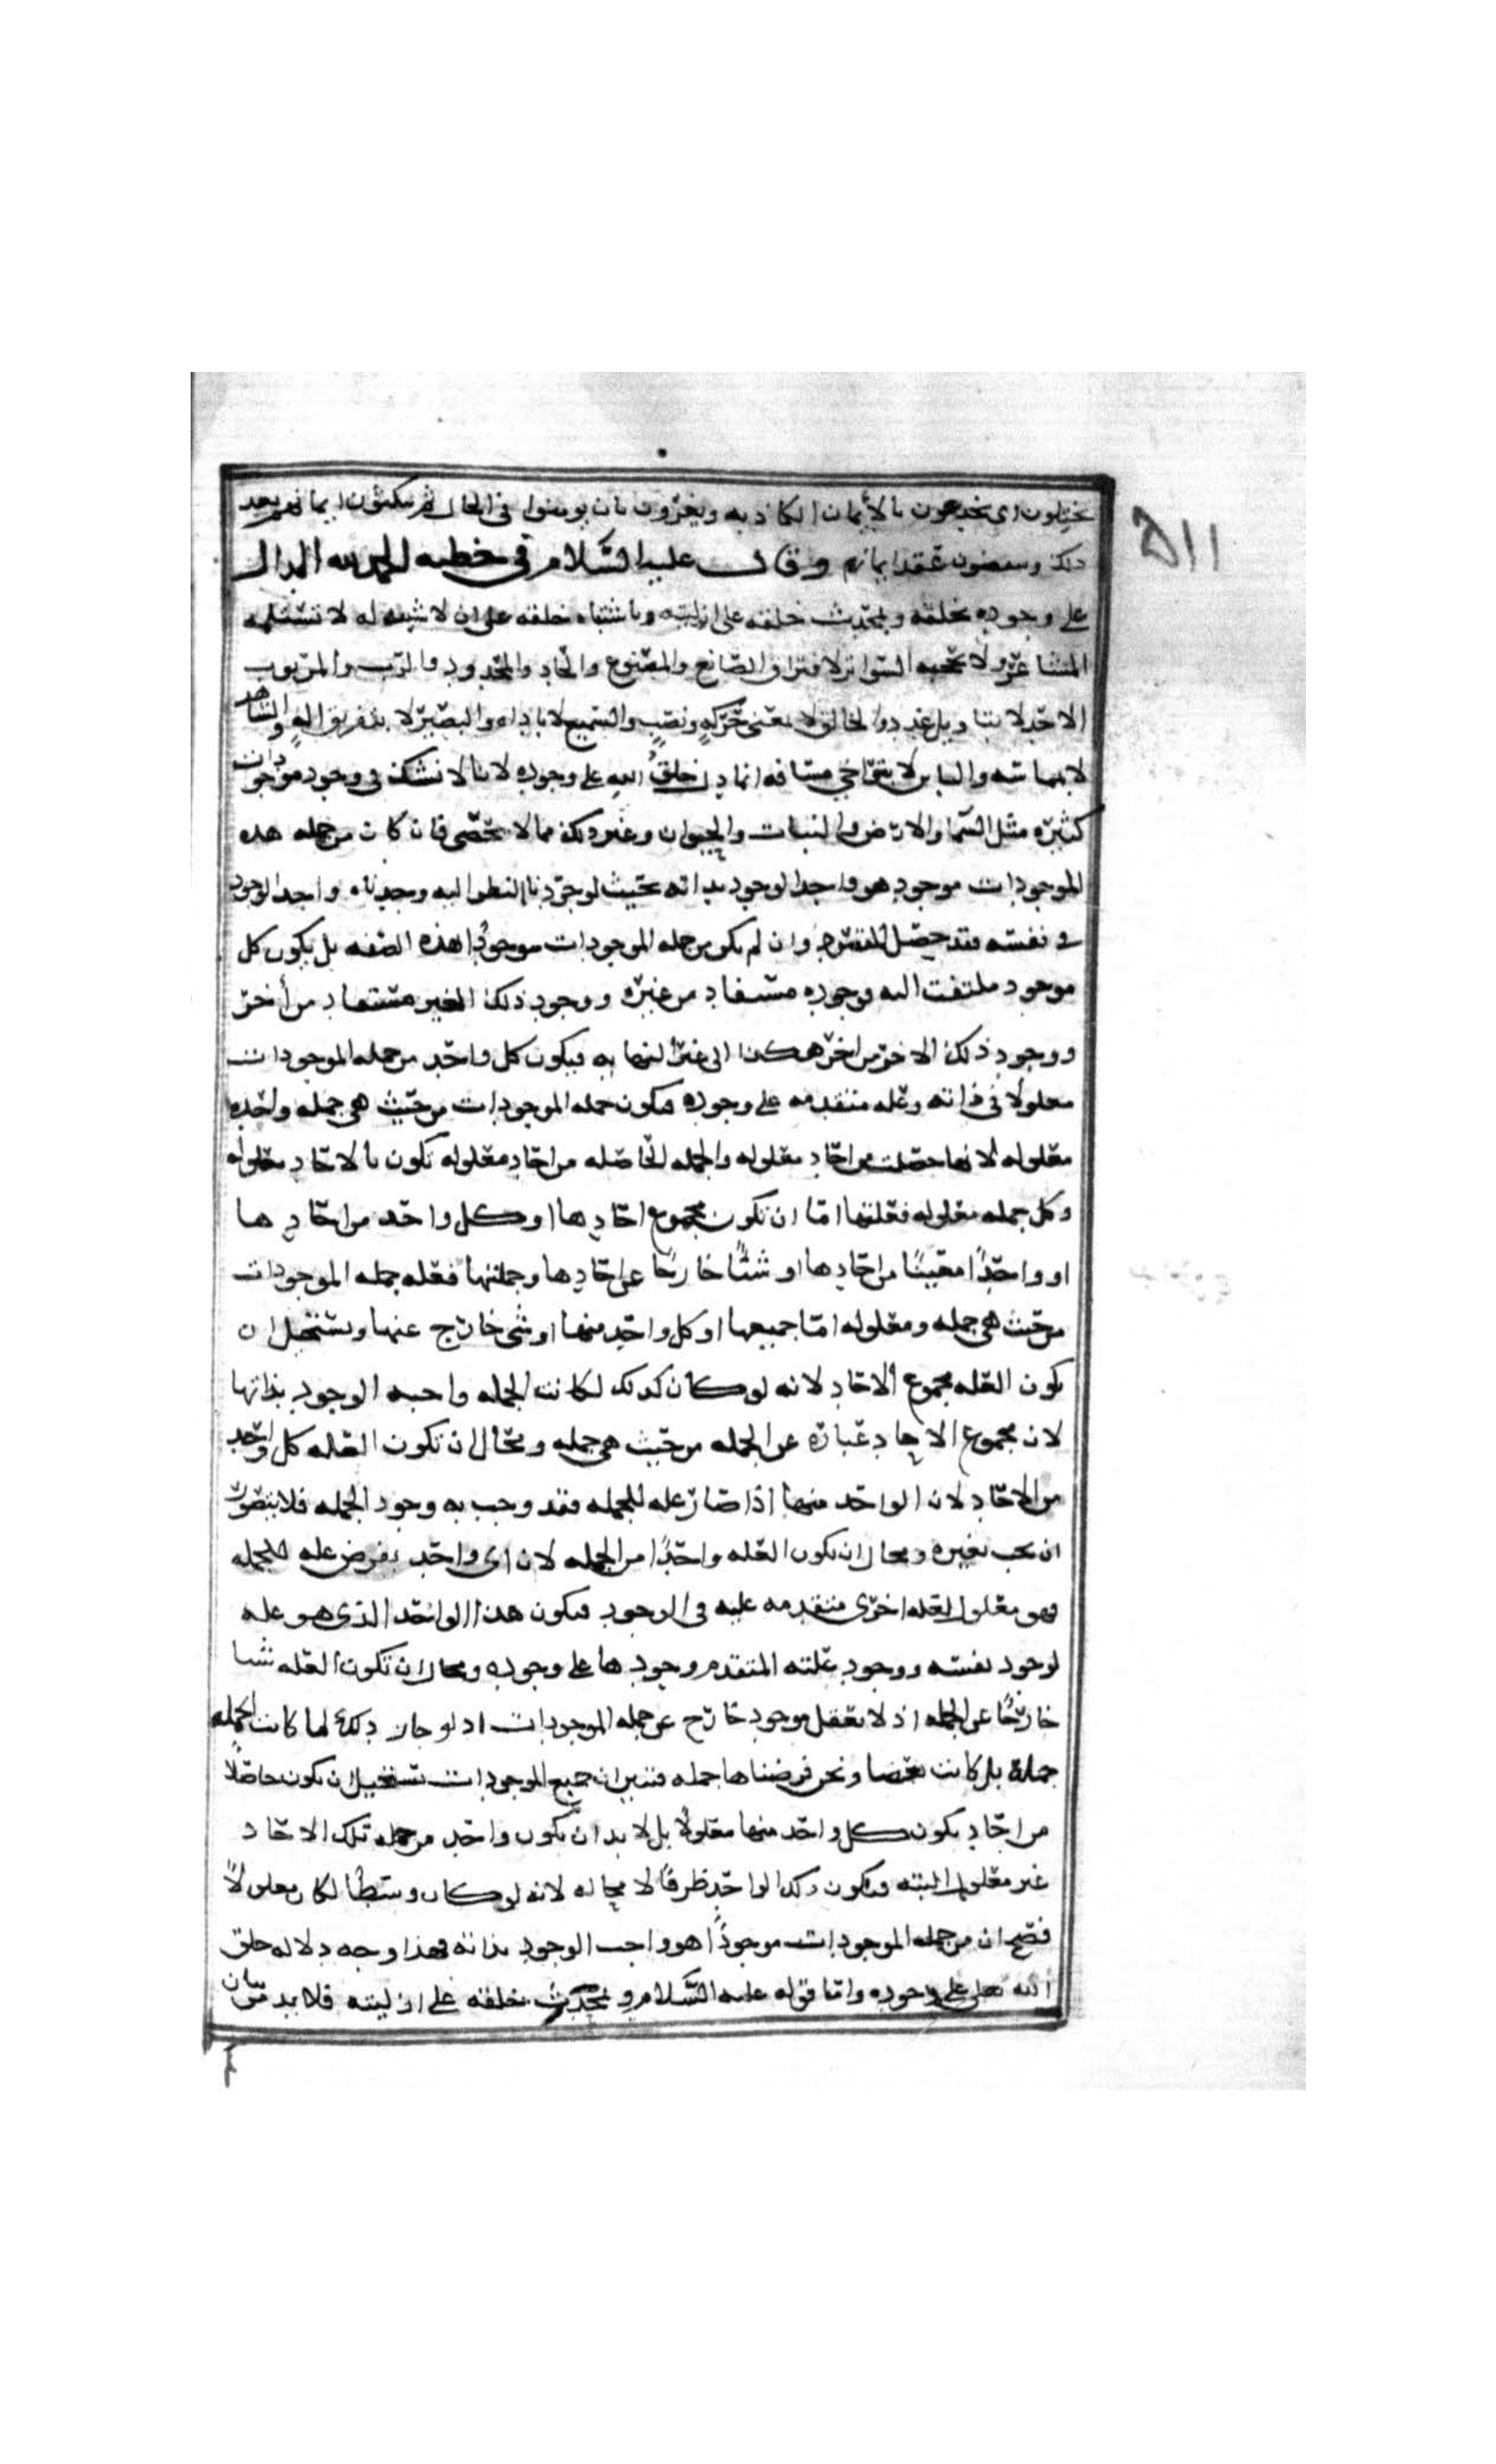 يختلون اى يخدعون بالأيمان الكاذبه ويغرون بان يومنوا فى الحال ثم ينكثون ايمانهم بعد
ذلك وينقضون عقد ايمانهم وقال عليه السلام فى خطبه الحمد لله الدال
على وجوده بخلقه وبمحدث خلقه على ازليته وباشتباه خلقه على ان لا شبه له لا تستلمه
المشاعر ولا تحجبه السواتر لافتراق الصانع والمصنوع والحاد والمحدود والرب والمربوب
الاحد لا بتاويل عدد والخالق لا بمعنى حركةٍ ونصبٍ والسميع لا باداه والبصير لا بتفريق الهٍ والشاهد
لا بمماسه والباين لا بتراخى مسافه انما دل خلقُ الله على وجوده لانا لا نشك فى وجود موجودات
كثيره مثل السما والارض والنبات والحيوان وغير ذلك مما لا يحصى فان كان من جمله هذه
الموجودات موجود هو واجب الوجود بذاته بحيث لو جردنا النظر اليه وجدناه واجب الوجود
فى نفسه فقد حصل المقصود وان لم يكن من جمله الموجودات موجودٌ بهذه الصفه بل يكون كل
موجود ملتفت اليه وجوده مستفاد من غيره ووجود ذلك الغير مستفاد من أخر
ووجود ذلك الاخر من اخر هكذا الى غير النهايه فيكون كل واحد من جمله الموجودات
معلولا فى ذاته وعله متقدمه على وجوده فيكون جمله الموجودات من حيث هى جمله واحده
معلوله لانها حصلت من احاد معلوله والجمله الحاصله من احاد معلوله تكون بالاحاد معلوله
وكل جمله معلوله فعلتها اما ان تكون مجموع احادها او كل واحد من احادها
او واحدًا معينًا من احادها او شئًا خارجًا عن احادها وجملتها فعله جمله الموجودات
من حيث هى جمله ومعلوله امّا جميعها او كل واحد منها او شى خارج عنها ويستحيل ان
يكون العله مجموع الاحاد لانه لو كان كذلك لكانت الجمله واجبه الوجود بذاتها
لان مجموع الاحاد عباره عن الجمله من حيث هى جمله ومحال ان تكون العله كل واحد
من الاحاد لان الواحد منها اذا صار عله للجمله فقد وجب به وجود الجمله فلا يتصور
ان يجب بغيره ومحال ان يكون العله واحدًا من الجمله لان اى واحد يفرض عله للجمله
فهو معلول لعله اخرى متقدمه عليه فى الوجود فيكون هذا الواحد الذى هو عله
لوجود نفسه ووجود علته المتقدم وجودها على وجوده ومحال ان تكون العله شيا
خارجًا عن الجمله اذ لا يعقل موجود خارج عن جمله الموجودات اذ لو جاز ذلك لما كانت الجمله
جملة بل كانت بعضا ونحن فرضناها جمله فتبين ان جميع الموجودات يستحيل ان يكون حاصلاً
من احاد يكون كل واحد منها معلولًا بل لا بد ان يكون واحد من جمله تلك الاحاد
غير معلول البته فيكون ذلك الواحد طرفًا لا محاله لانه لو كان وسطًا لكان معلولاً
فصح ان من جمله الموجودات موجودًا هو واجب الوجود بذاته فهذا وجه دلاله خلق
الله تعلى على وجوده واما قوله عليه السلام وبمحدث خلقه على ازليته فلا بد من بيان